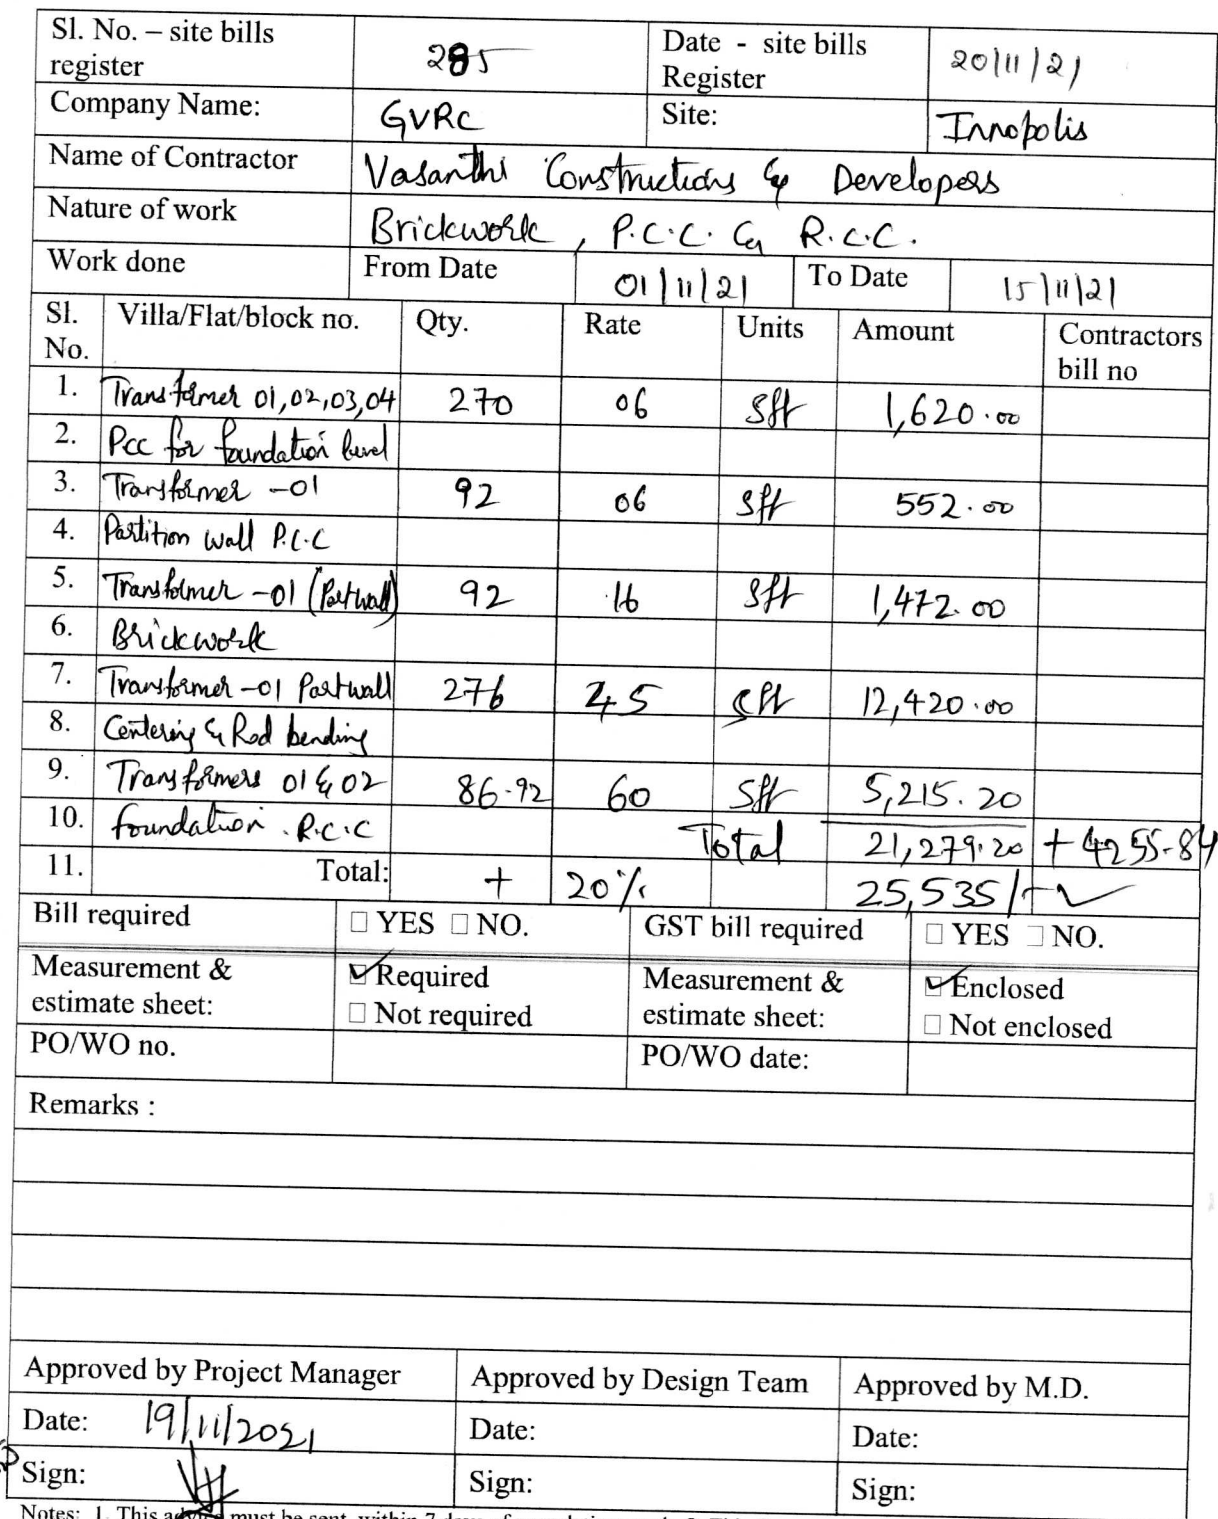 Sl. No. – site bills register 285 Date - site bills Register 20/11/21
Company Name: GVRC Site: Innopolis
Name of Contractor Vasanthi Constructions & Developers
Nature of work Brickwork, P.C.C. & R.C.C.
Work done From Date 01/11/21 To Date 15/11/21
Sl. No. Villa/Flat/block no. Qty. Rate Units Amount Contractors bill no
1. Transformer 01,02,03,04 270 06 Sft 1,620.00
2. Pcc for foundation level
3. Transformer -01 92 06 Sft 552.00
4. Partition wall P.C.C
5. Transformer -01 (Partwall) 92 16 Sft 1,472.00
6. Brickwork
7. Transformer -01 Partwall 276 45 Sft 12,420.00
8. Centering & Rod bending
9. Transformers 01 & 02 86.92 60 Sft 5,215.20
10. foundation R.C.C Total 21,279.20 + 4255.84
11. Total: + 20% 25,535/-
Bill required □ YES □ NO. GST bill required □ YES □ NO.
Measurement & estimate sheet: ☑ Required □ Not required Measurement & estimate sheet: ☑ Enclosed □ Not enclosed
PO/WO no. PO/WO date:
Remarks :
Approved by Project Manager Approved by Design Team Approved by M.D.
Date: 19/11/2021 Date: Date:
Sign: Sign: Sign:
Notes: 1. This must be sent within 7 days